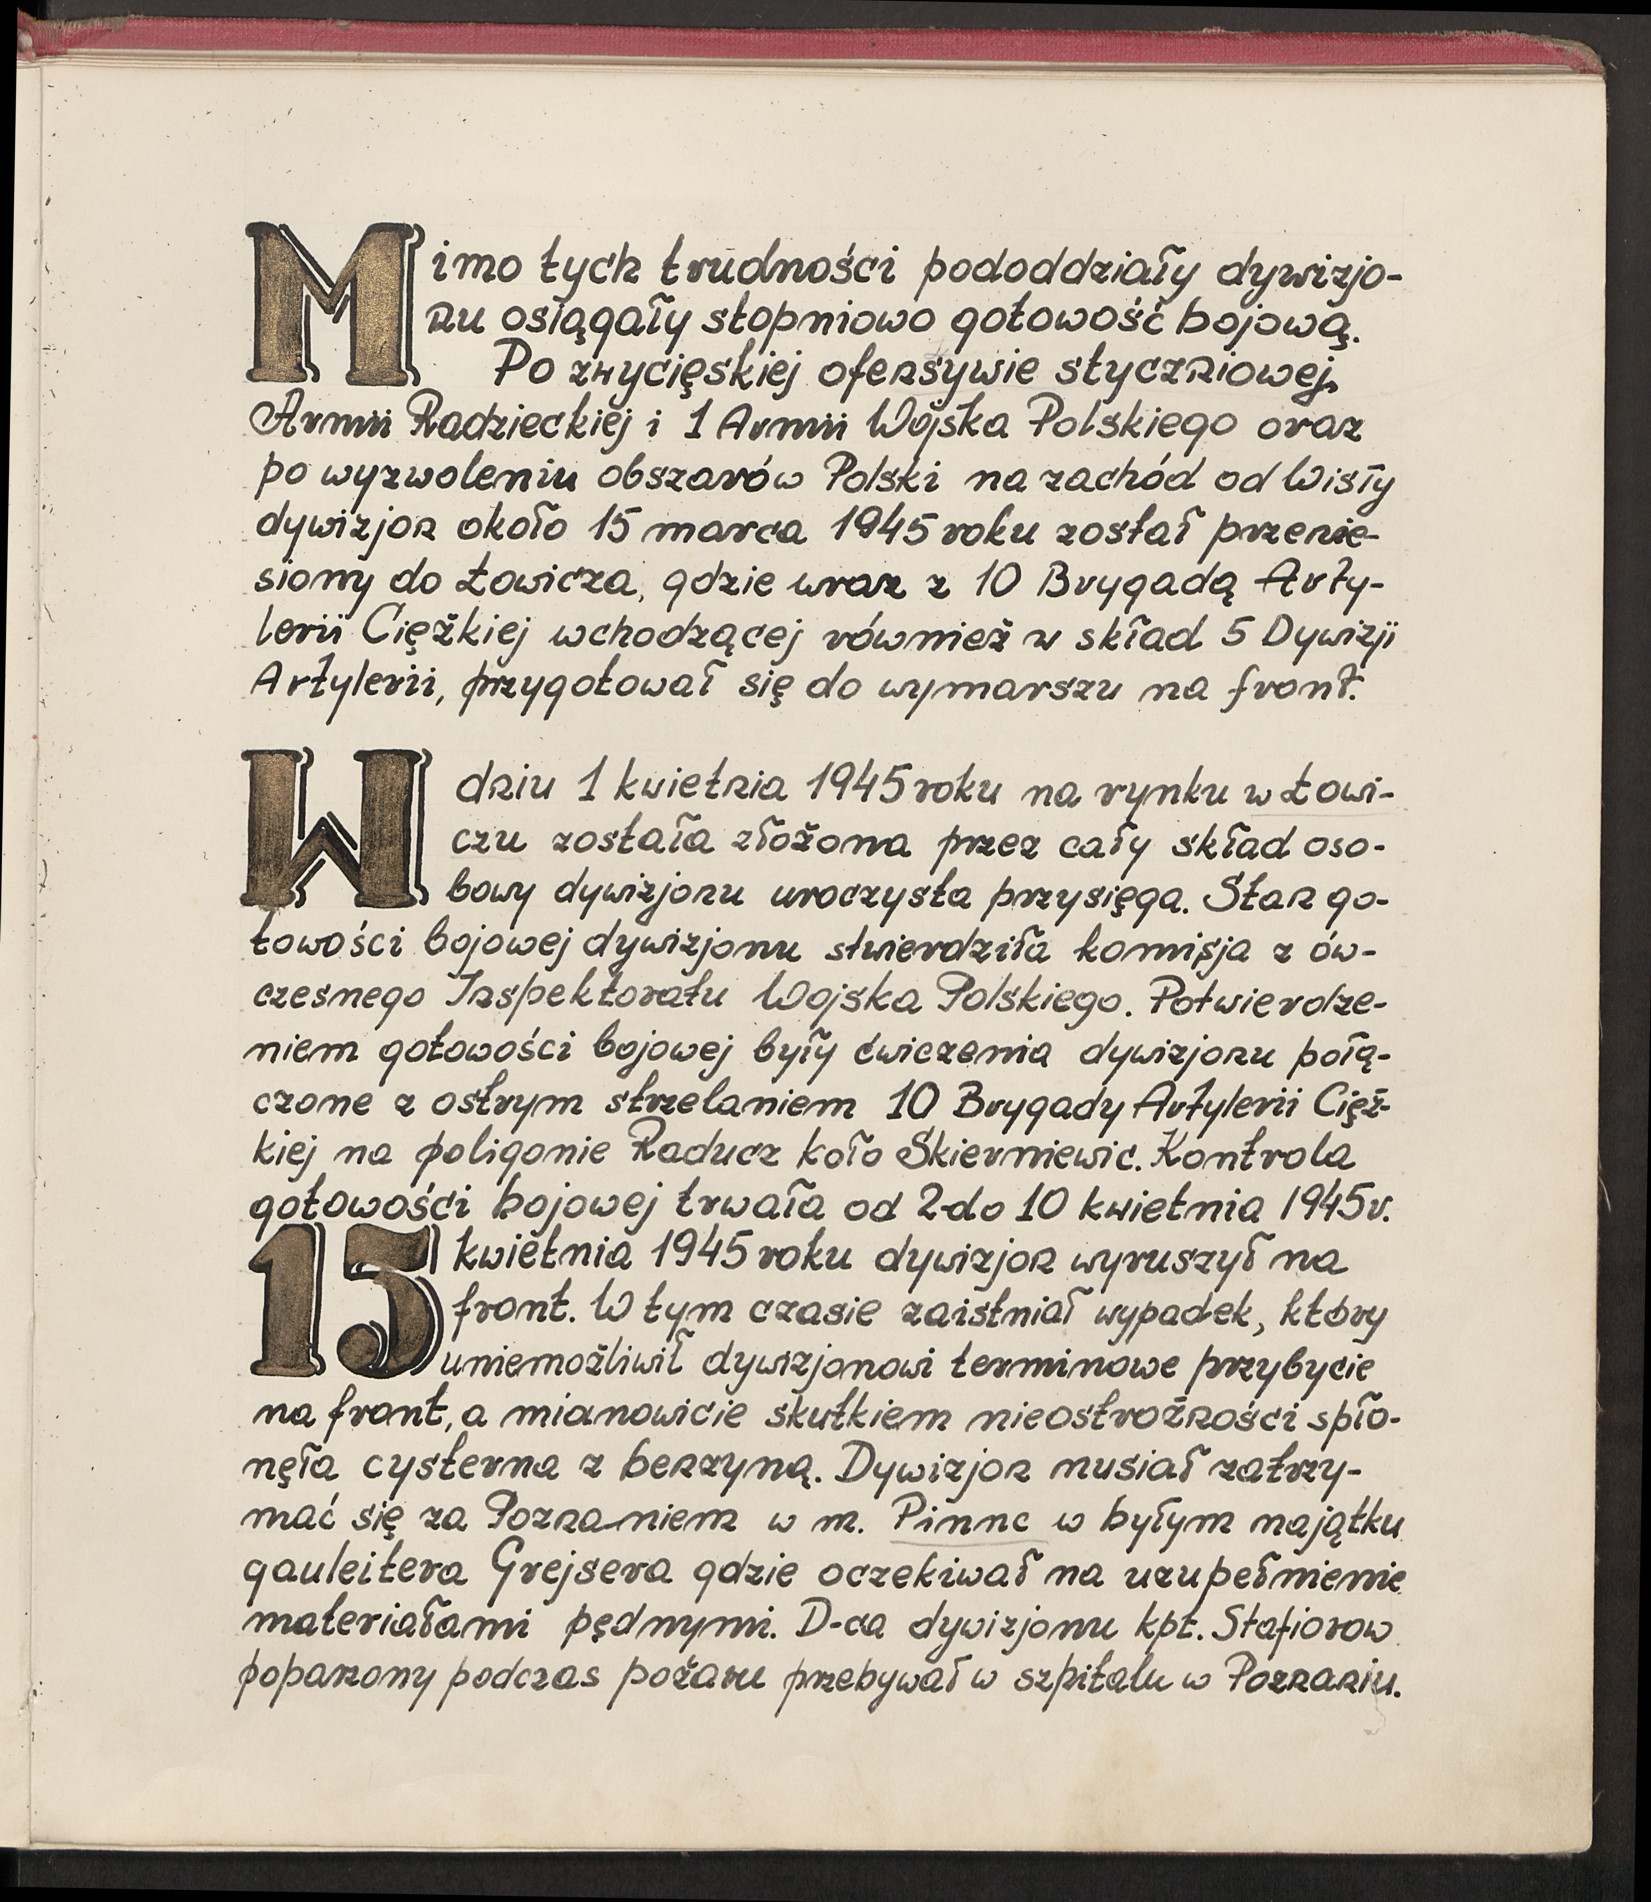 Mimo tych trudności pododdziały dywizjo-
nu osiągały stopniowo gotowość bojową.
Po zwycięskiej ofensywie styczniowej
Armii Radzieckiej i 1 Armii Wojska Polskiego oraz
po wyzwoleniu obszarów Polski na zachód od Wisły
dywizjon około 15 marca 1945 roku został przenie-
siony do Łowicza, gdzie wraz z 10 Brygadą Arty-
lerii Ciężkiej wchodzącej również w skład 5 Dywizji
Artylerii, przygotował się do wymarszu na front.
W dniu 1 kwietnia 1945 roku na rynku w Łowi-
czu została złożona przez cały skład oso-
bowy dywizjonu uroczysta przysięga. Stan go-
towości bojowej dywizjonu stwierdziła komisja z ów-
czesnego Inspektoratu Wojska Polskiego. Potwierdze-
niem gotowości bojowej były ćwiczenia dywizjonu połą-
czone z ostrym strzelaniem 10 Brygady Artylerii Cięż-
kiej na poligonie Raducz koło Skierniewic. Kontrola
gotowości bojowej trwała od 2-do 10 kwietnia 1945r.
15 kwietnia 1945 roku dywizjon wyruszył na
front. W tym czasie zaistniał wypadek, który
uniemożliwił dywizjonowi terminowe przybycie
na front, a mianowicie skutkiem nieostrożności spło-
nęła cysterna z benzyną. Dywizjon musiał zatrzy-
mać się za Poznaniem w m. Pinne w byłym majątku
gauleitera Grejsera gdzie oczekiwał na uzupełnienie
materiałami pędnymi. D-ca dywizjonu kpt. Stafiorow
poparzony podczas pożaru przebywał w szpitalu w Poznaniu.